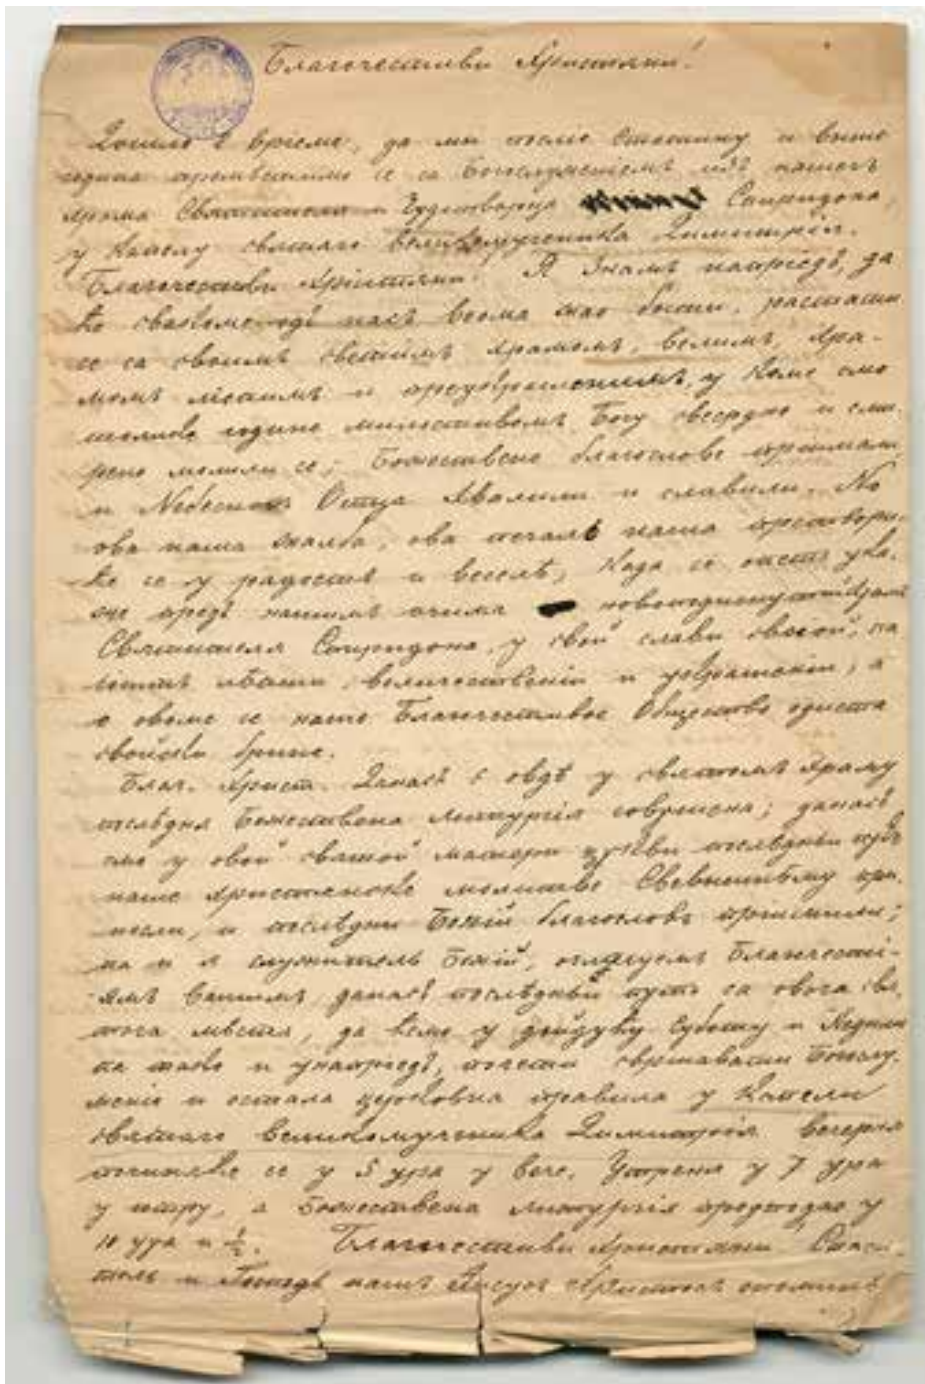 Благочестиви Христяни!
Дошло е время, да ми после стотину и више
година премѣстимо се са Богослуженіемъ изъ нашегъ
храма Святителя и Чудотворца Спиридона,
у Капелу святаго великомученика Димитрія.
Благочестиви Христяни! Я знамъ напредъ, да
ће свакоме одъ насъ веома жао быти, растати
се са своимъ светимъ храмомъ, велимъ, хра-
момъ лепимъ и у коме смо
толике године милостивомъ Богу усердно и сми-
рено молили се; Божествене благослове примали
и Небеснога Отца хвалили и славили. Но
ова наша жалба, ова печаль наша претвори-
ће се у радость и веселѣ, када се опетъ ука-
же предъ нашимъ очима храмъ
Святителя Спиридона, у свой слави своіой, на
лѣпши, величествений и украшений, а
о овоме се наше Благочестивое Общество одиста
свойски брине.
Благ. Христ. Данасъ є овдѣ у святомъ храму
послѣдня Божествена литургія совршена; данасъ
смо у овой святой матери церкви послѣдньи путъ
наше христянске молитве Свевышнѣму при-
несли, и послѣдньи Божій благословъ примили;
па и я служитель Божій, Благочестію
вашимъ, данасъ послѣдньи путъ са овога све-
тога мѣста, да ћемо у дойдућу Суботу и Недѣлю
па тако и унапредъ, почети свршавати Богослу-
женіе и остала церковна правила у Капели
святаго великомученика Димитрія вечерня
починяће се у 5 ура у вече, Утреня у 7 ура
у ютру, а Божествена литургія предъ подне у
10 ура и ½. Благочестиви Христяни Спаси-
тель и Господь нашъ Іисусъ Христосъ